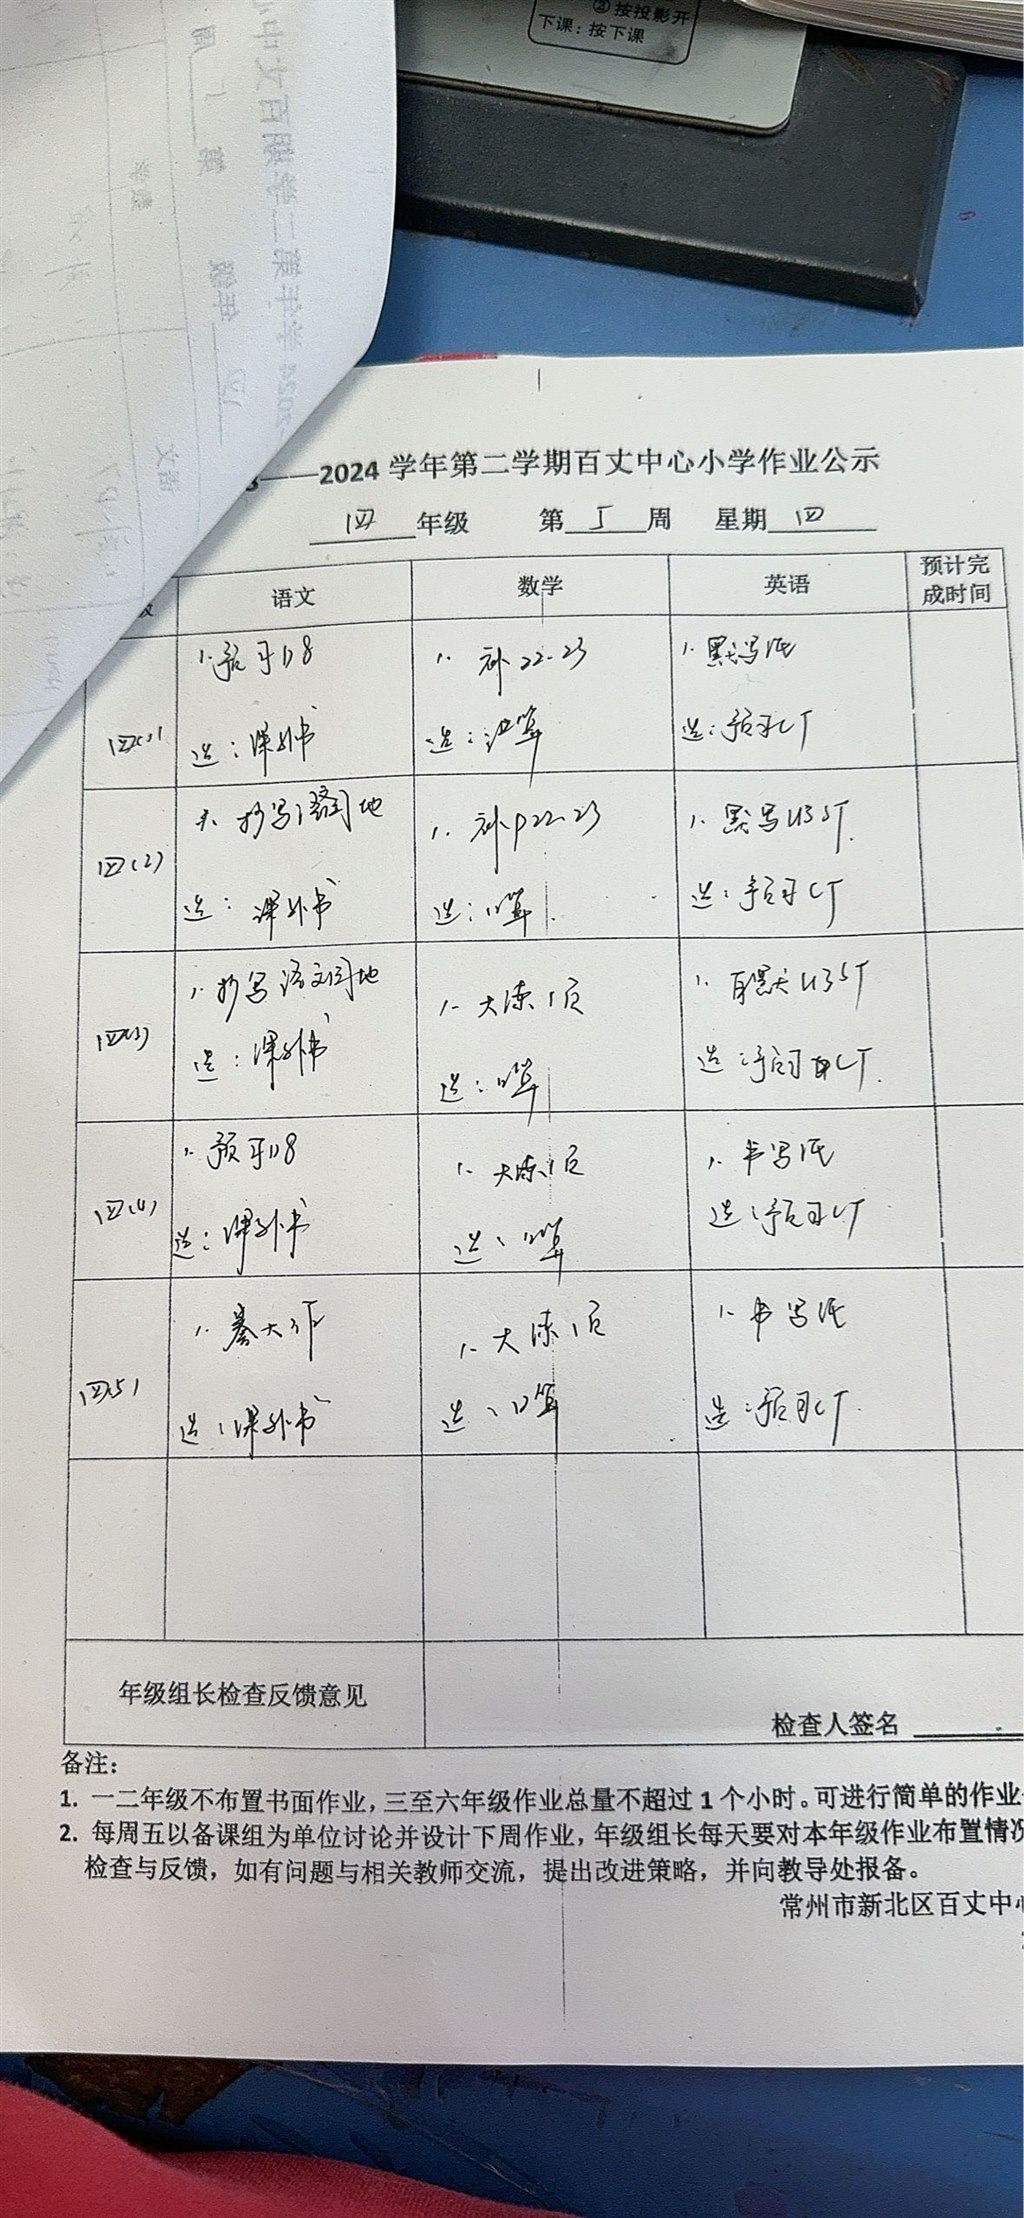 ③按投影开
下课：按下课
——2024 学年第二学期百丈中心小学作业公示
四 年级 第 5 周 星期 四
语文 数学 英语 预计完成时间
四(1) 1. 预习18 1. 补22-23 1. 默写纸
选：课外书 选：口算 选：预习CT
四(2) 抄写语文园地 1. 补P22-23 1. 默写U3ST
选：课外书 选：口算 选：预习CT
四(3) 1. 抄写语文园地 1. 大练1页 1. 自默U3ST
选：课外书 选：口算 选：预习CT
四(4) 1. 预习18 1. 大练1页 1. 书写纸
选：课外书 选：口算 选：预习CT
四(5) 1. 大练1页 1. 书写纸
选：课外书 选：口算 选：预习CT
年级组长检查反馈意见
检查人签名
备注：
1. 一二年级不布置书面作业，三至六年级作业总量不超过 1 个小时。可进行简单的作业
2. 每周五以备课组为单位讨论并设计下周作业，年级组长每天要对本年级作业布置情况
检查与反馈，如有问题与相关教师交流，提出改进策略，并向教导处报备。
常州市新北区百丈中